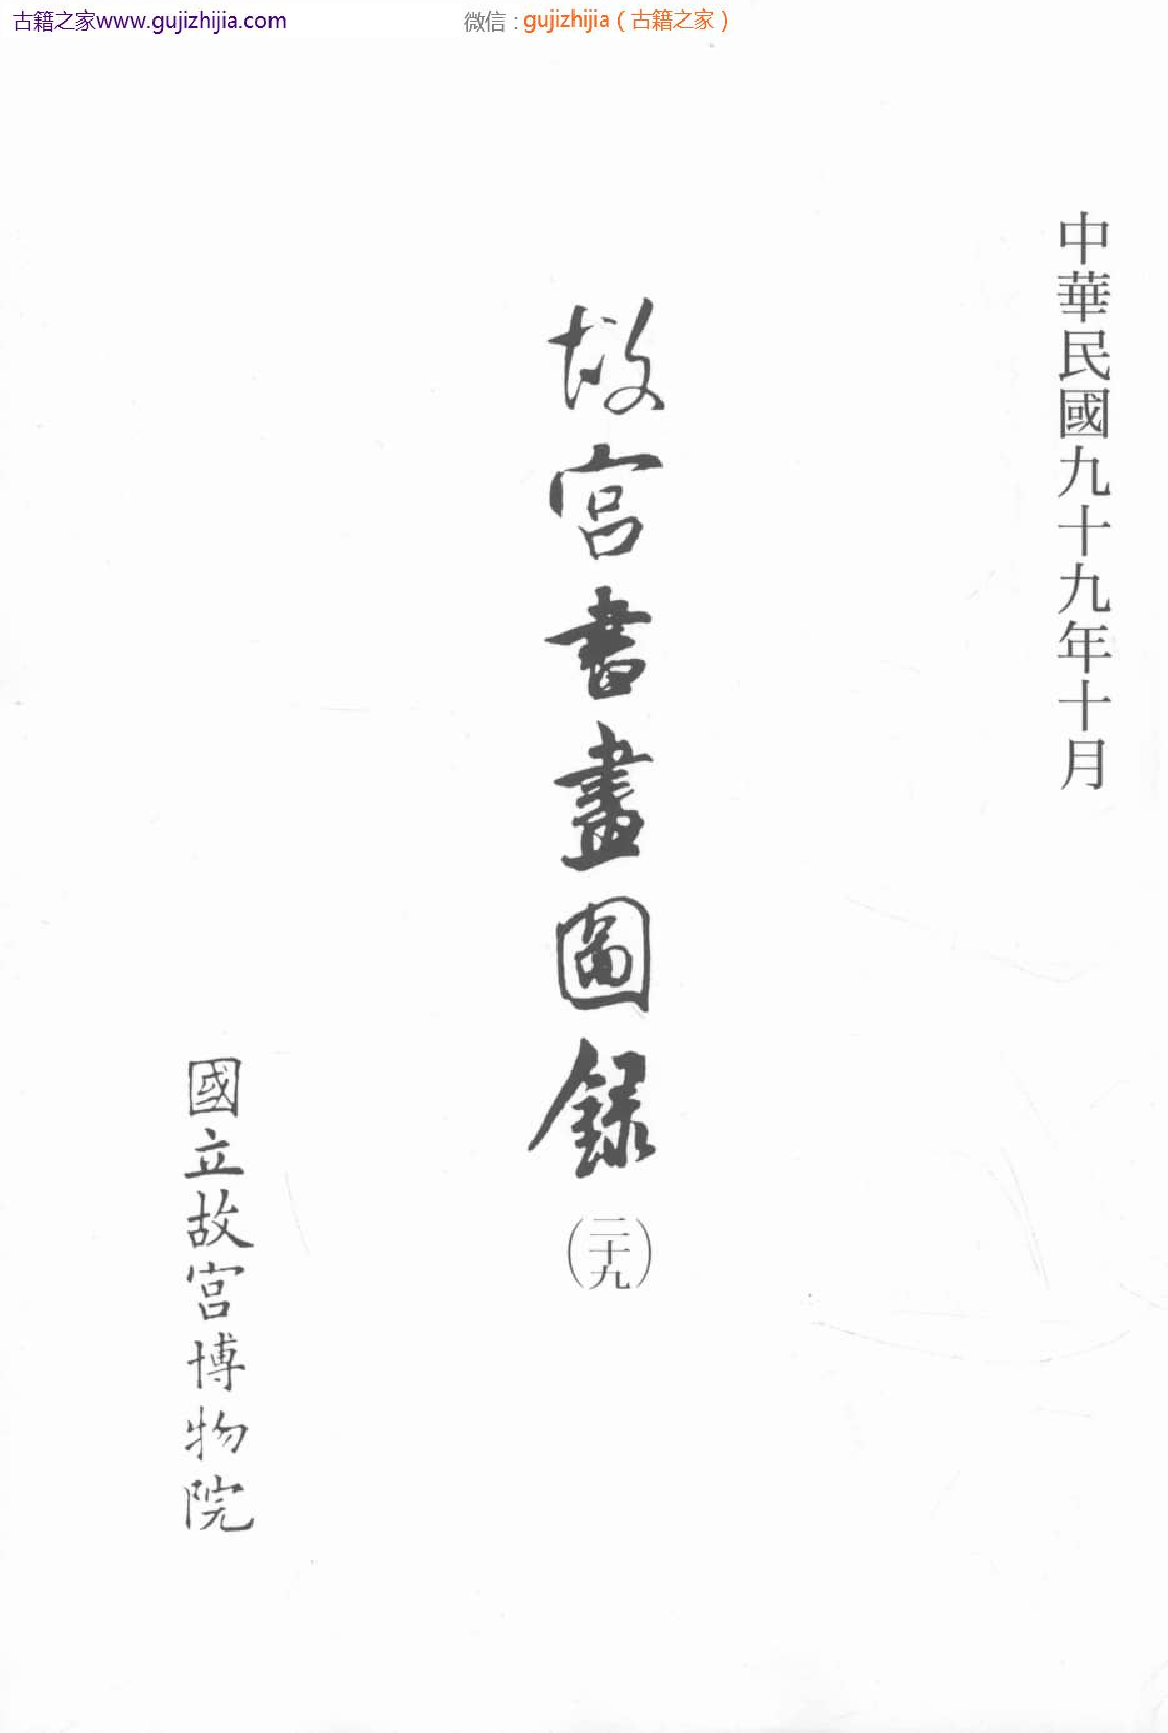 古籍之家www.gujizhijia.com
微信：gujizhijia（古籍之家）
中華民國九十九年十月
故宮書畫圖錄（二十九）
國立故宮博物院